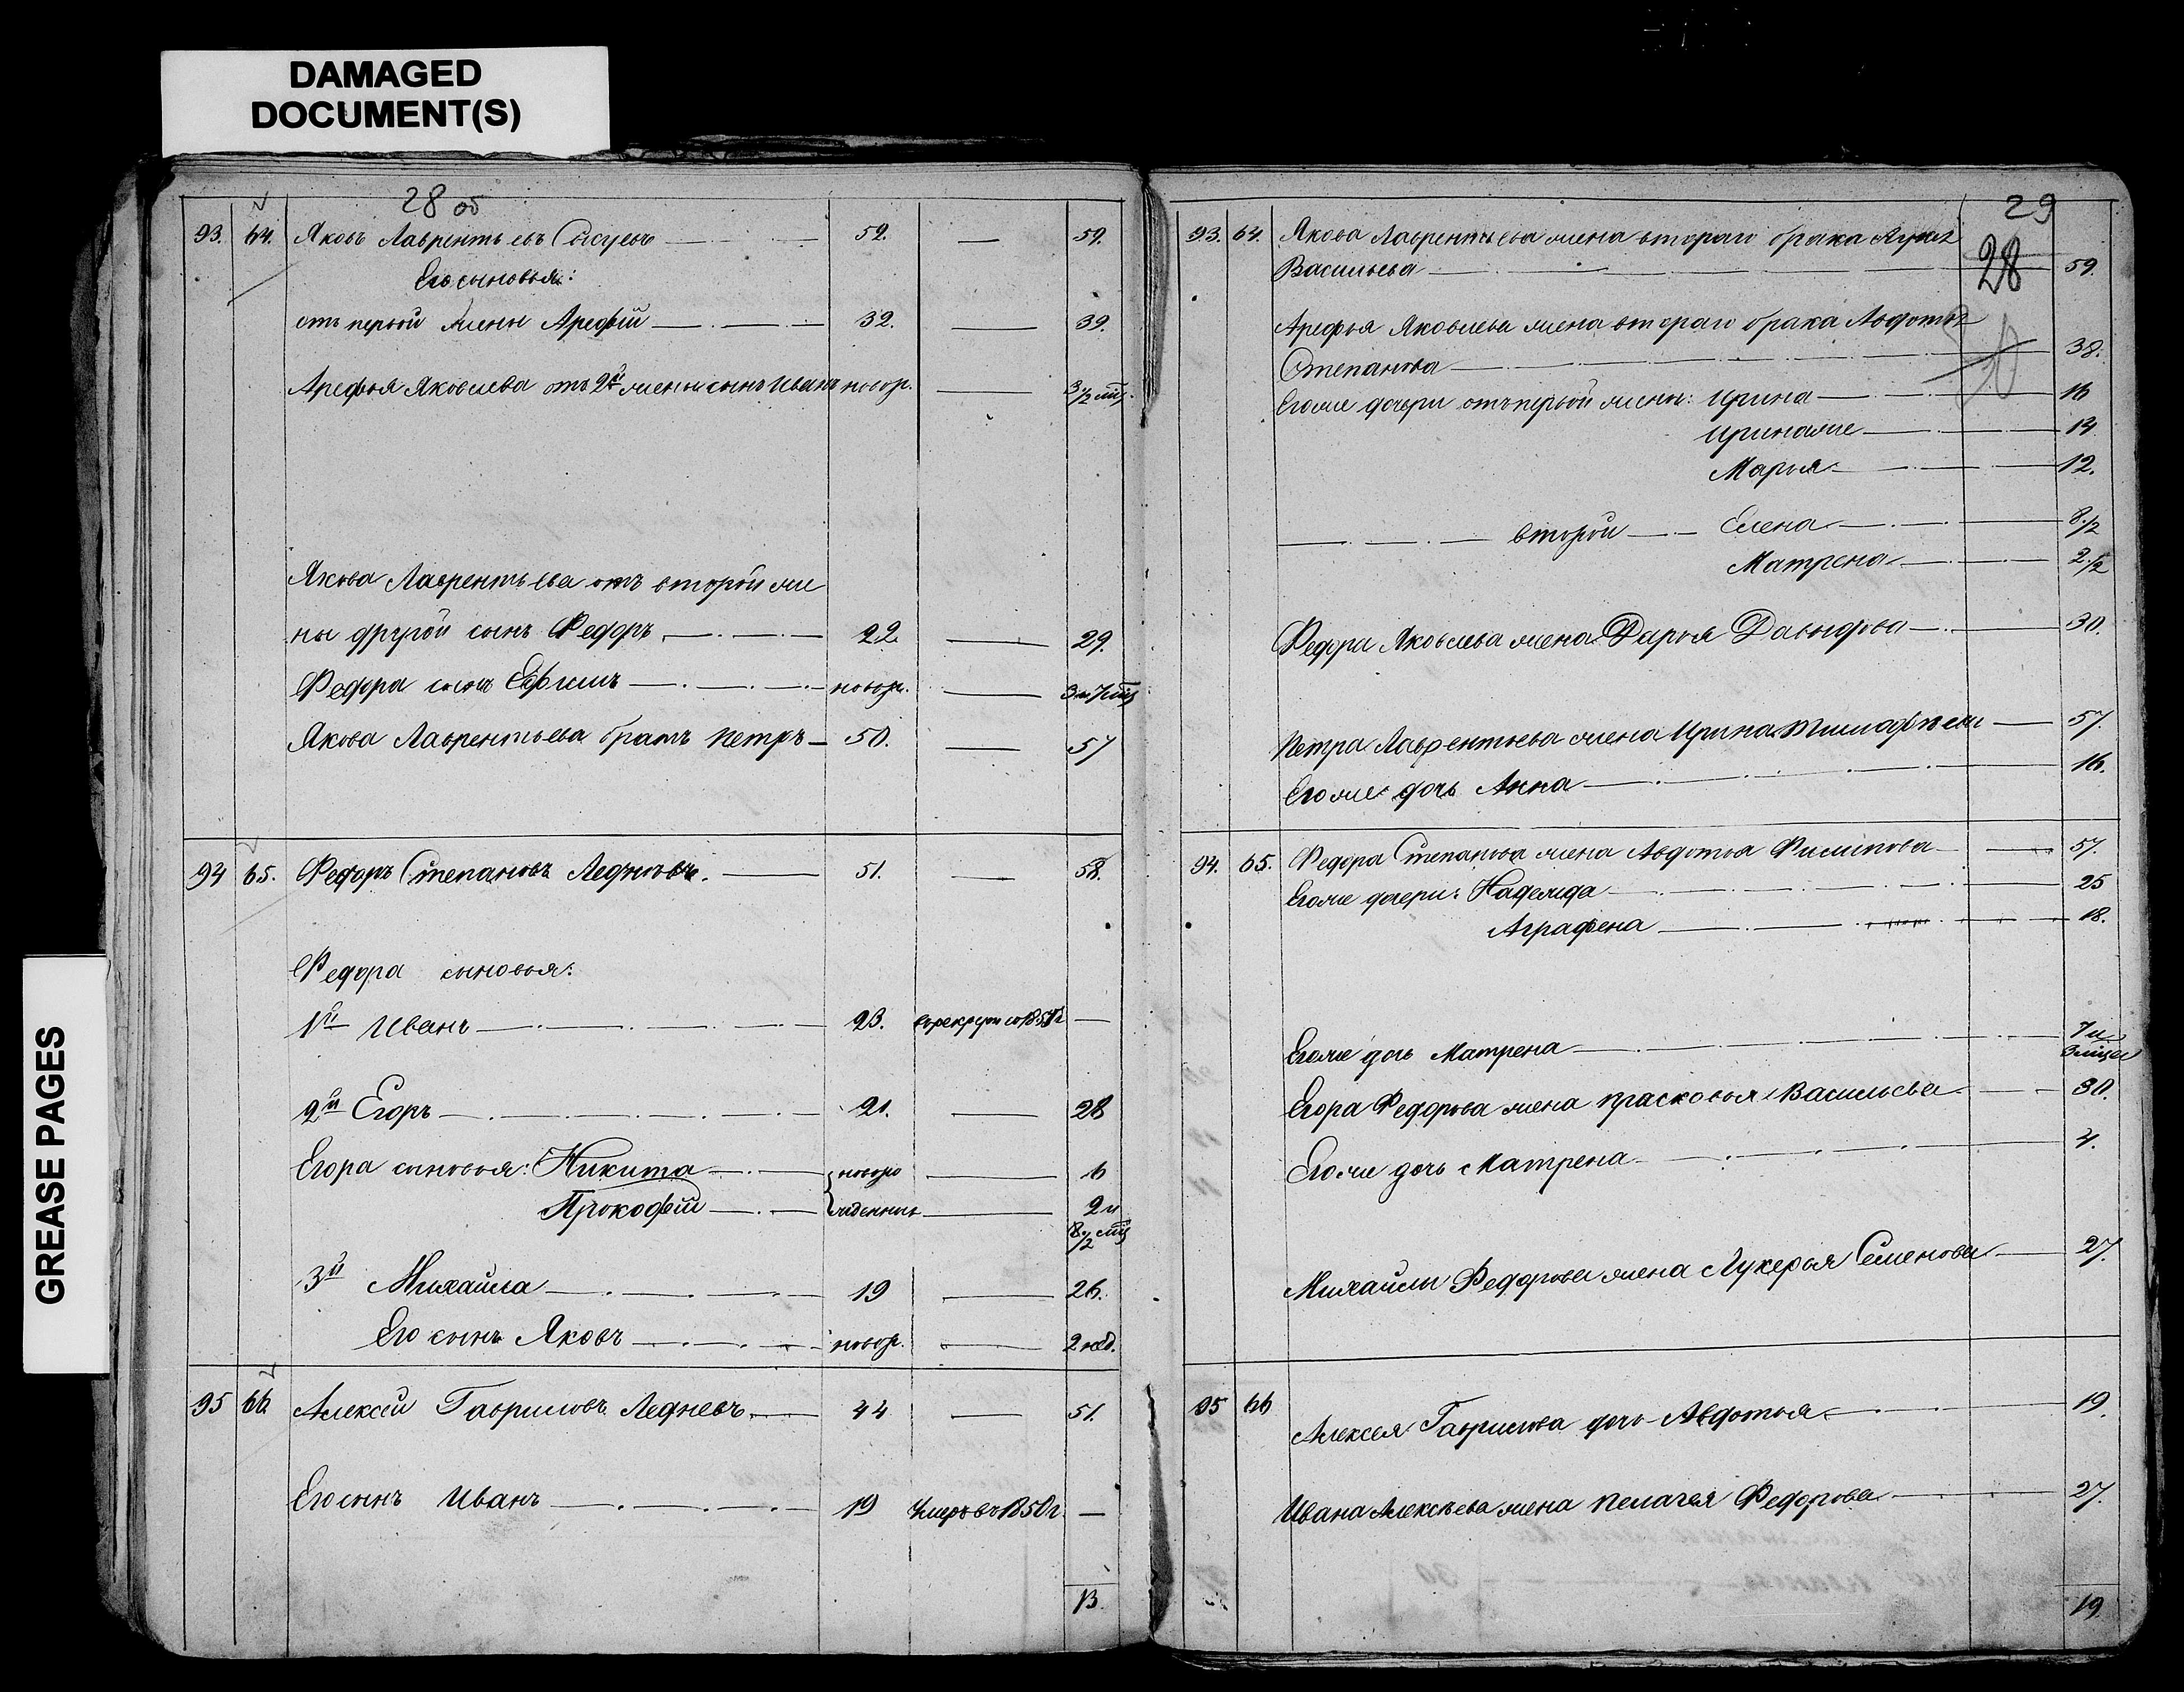 DAMAGED
DOCUMENT(S)
GREASE PAGES
28 об
93. 64. Яковъ Лаврентьевъ Сысуевъ 52. — 59.
Его сыновья:
отъ первой жены Арефій 32. — 39.
Арефья Яковлева отъ 2й жены сынъ Иванъ новор. — 3 1/2 мц.
Якова Лаврентьева отъ второй же
ны другой сынъ Федоръ 22. — 29.
Федора сынъ Ефимъ новор. — 3 и 7 мц
Якова Лаврентьева братъ Петръ 50. — 57
94 65. Федоръ Степановъ Ледневъ. 51. — 58.
Федора сыновья:
1й Иванъ 23. —
2й Егоръ 21. — 28
Егора сыновья: Никита новоро — 6
Прокофій жденные — 2 и
8 1/2 мц
3й Михайла 19 — 26.
Его сынъ Яковъ новор. — 2 нед.
95 66 Алексей Гавриловъ Ледневъ 44 — 51.
Его сынъ Иванъ 19 Умеръ въ 1850 г. —
13.
29
28
93. 64. Якова Лаврентьева жена втораго брака
Васильева 59.
Арефья Яковлева жена втораго брака Авдотья
Степанова 38.
Его же дочери отъ первой жены: Ирина 16
Ирина же 14
Марья 12.
второй — Елена 8 1/2
Матрена 2 1/2
Федора Яковлева жена Дарья Давыдова 30.
Петра Лаврентьева жена Ирина Тимофеева 57.
Его же дочь Анна 16.
94. 65. Федора Степанова жена Авдотья Филипова 57.
Его же дочери: Надежда 25
Аграфена 18.
Его же дочь Матрена 7 и
3 мцев
Егора Федорова жена Прасковья Васильева 30.
Его же дочь Матрена 4.
Михайлы Федорова жена Лукерья Семенова 27.
95 66 Алексея Гаврилова дочь Авдотья 19.
Ивана Алексеева жена Пелагея Федорова 27.
19